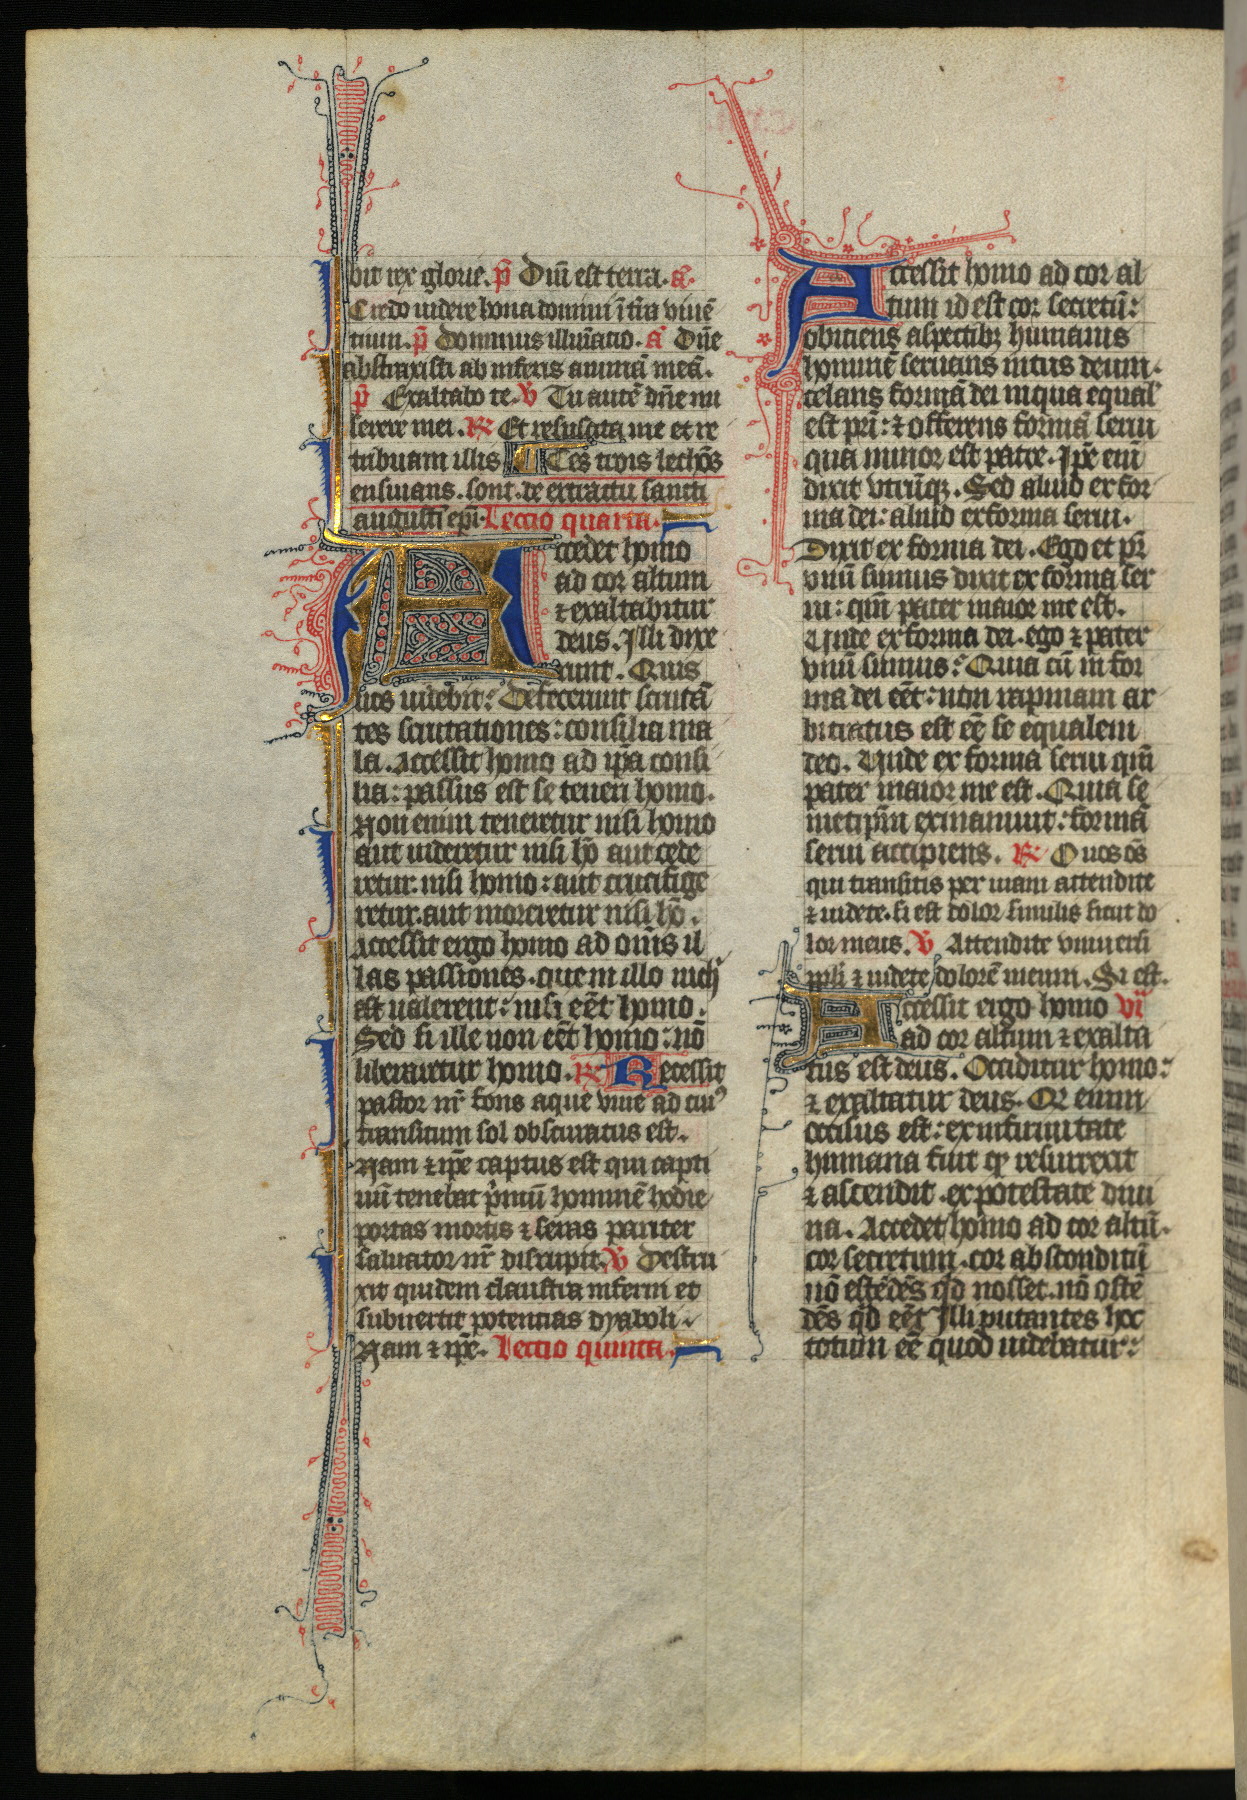 bit rex glorie. p̄ Dñi est terra. a̅.
Credo videre bona domini ī t̄ra vivē
tium. p̄ Dominus illūinatio. a̅ Dñe
abstraxisti ab inferis animā meā.
p̄ Exaltabo te. v̄ Tu autē dñe mi
serere mei. R̄ Et resuscita me et re
tribuam illis Ces trois lechōs
ensuians. sont. de extraitu sancti
augusti epi. Lectio quarta.
Accedet homo
ad cor altum
⁊ exaltabitur
deus. Illi dixe
runt. Quis
nos videbit: Defecerunt scrutā
tes scrutationes: consilia ma
la. Accessit homo ad ip̄a consi
lia: passus est se teneri homo.
Non enim teneretur nisi homo
aut videretur nisi hō aut cede
retur. nisi homo: aut crucifige
retur. aut moreretur nisi hō.
Accessit ergo homo ad oms̄ il
las passiones. que in illo nich̄
est valerent: nisi eēt homo.
Sed si ille non eēt homo: nō
liberaretur homo. R̄ Recessit
pastor nr̄ fons aque vive ad cui᷒
transitum sol obscuratus est.
Nam ⁊ ip̄e captus est qui capti
vū tenebat p̄mū hominē hodie
portas mortis ⁊ seras pariter
salvator nr̄ disrupit. v̄ Destru
xit quidem claustra inferni et
subvertit potentias dyaboli.
Nam ⁊ ip̄e. Lectio quinta.
Accessit homo ad cor al
tum id est cor secretū:
obiciens aspectibꝫ humanis
hominē servans intus deum.
celans formā dei in qua equal᷒
est pri̅: ⁊ offerens formā servi
qua minor est patre. Ip̄e eni̅
dixit utrūqꝫ. Sed aliud ex for
ma dei: aliud ex forma servi.
Dixit ex forma dei. Ego et pr̄
unū sumus dixit ex forma ser
vi: qm̄ pater maior me est.
Unde ex forma dei. ego ⁊ pater
unū sumus: Quia cū in for
ma dei eēt: non rapinam ar
bitratus est eē se equalem
deo. Unde ex forma servi qm̄
pater maior me est. Quia se
metipm̄ exinanivit: formā
servi accipiens. R̄ O vos oēs
qui transitis per viam attendite
⁊ videte. si est dolor similis sicut do
lor meus. v̄ Attendite universi
ppli̅ ⁊ videte dolorē meum. Si est.
Accessit ergo homo vi
ad cor altum ⁊ exalta
tus est deus. Occiditur homo:
⁊ exaltatur deus. Qꝛ enim
occisus est: ex infirmitate
humana fuit qꝫ resurrexit
⁊ ascendit. ex potestate divi
na. Accedet homo ad cor altū.
cor secretum. cor absconditū
nō ostēdēs qd̄ nosset. nō ostē
dēs qd̄ eēt Illi putantes hoc
totum eē quod videbatur: